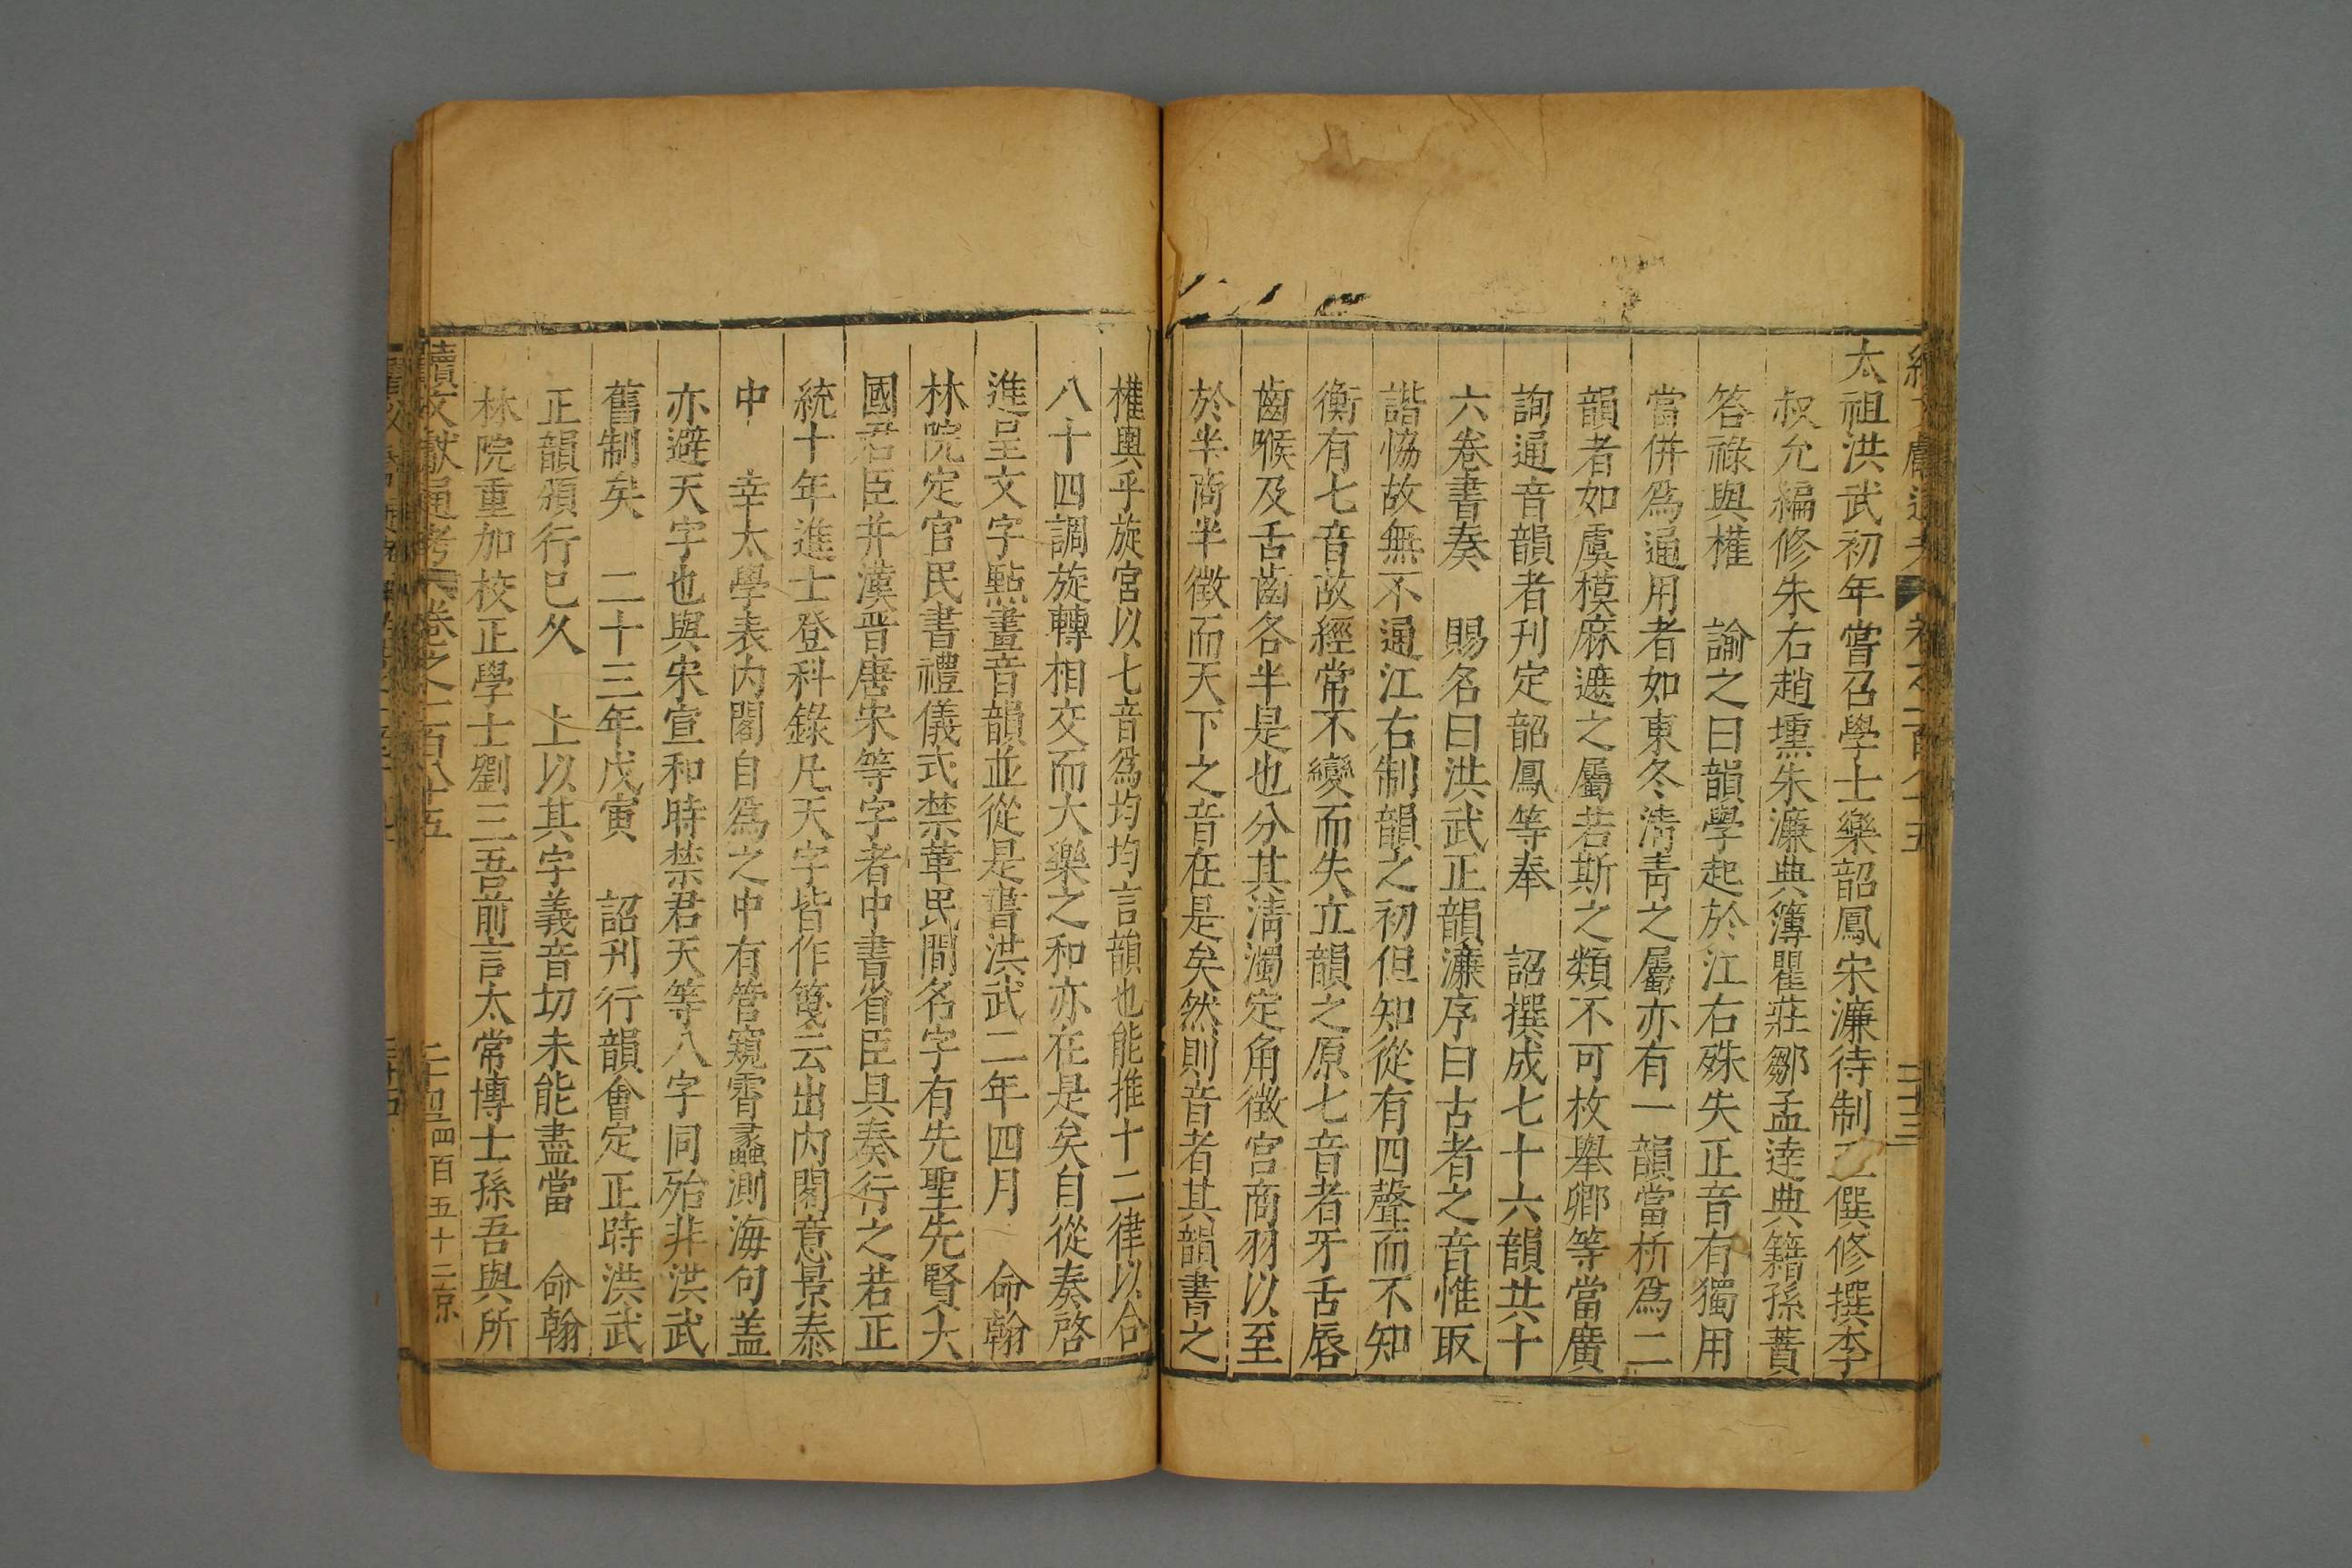 太祖洪武初年嘗召學士樂韶鳳宋濂待制王僎修撰李
叔允編修朱右趙壎朱濂典簿瞿莊鄒孟逵典籍孫蕡
答祿與權　諭之曰韻學起於江右殊失正音有獨用
當併爲通用者如東冬淸靑之屬亦有一韻當析爲二
韻者如虞模麻遮之屬若斯之類不可枚舉卿等當廣
詢通音韻者刊定韶鳳等奉　詔撰成七十六韻共十
六卷書奏　賜名曰洪武正韻濂序曰古者之音惟取
諧恊故無不通江右制韻之初但知從有四聲而不知
衡有七音故經常不變而失立韻之原七音者牙舌唇
齒喉及舌齒各半是也分其淸濁定角徵宮商羽以至
於半商半徵而天下之音在是矣然則音者其韻書之
權輿乎旋宮以七音爲均均言韻也能推十二律以合
八十四調旋轉相交而大樂之和亦在是矣自從奏啓
進呈文字點畫音韻並從是書洪武二年四月　命翰
林院定官民書禮儀式禁革民間名字有先聖先賢大
國君臣并漢晉唐宋等字者中書省臣具奏行之若正
統十年進士登科錄凡天字皆作箋云出内閣意景泰
中　幸太學表内閣自爲之中有管窺霄蠡測海句盖
亦避天字也與宋宣和時禁君天等八字同殆非洪武
舊制矣　二十三年戊寅　詔刊行韻會定正時洪武
正韻頒行已久　上以其字義音切未能盡當　命翰
林院重加校正學士劉三吾前言太常博士孫吾與所
續文獻通考　卷之一百八十五　四百五十二京